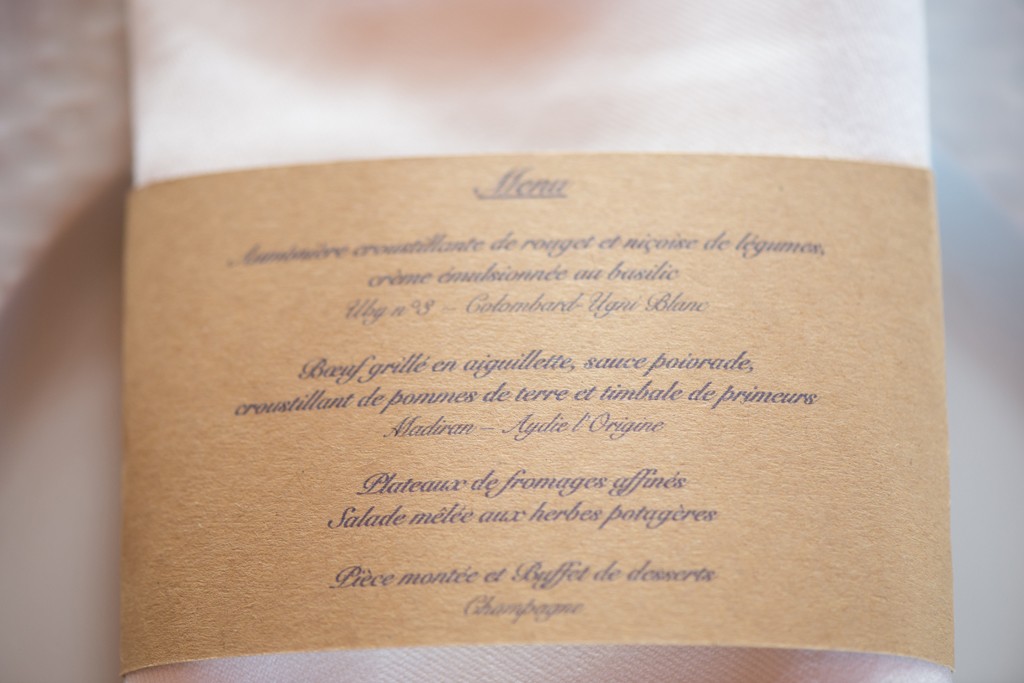 Menu
Aumônière croustillante de rouget et niçoise de légumes,
crème émulsionnée au basilic
Uby n°3 – Colombard-Ugni Blanc
Bœuf grillé en aiguillette, sauce poiorade,
croustillant de pommes de terre et timbale de primeurs
Madiran – Aydie l'Origine
Plateaux de fromages affinés
Salade mêlée aux herbes potagères
Pièce montée et Buffet de desserts
Champagne